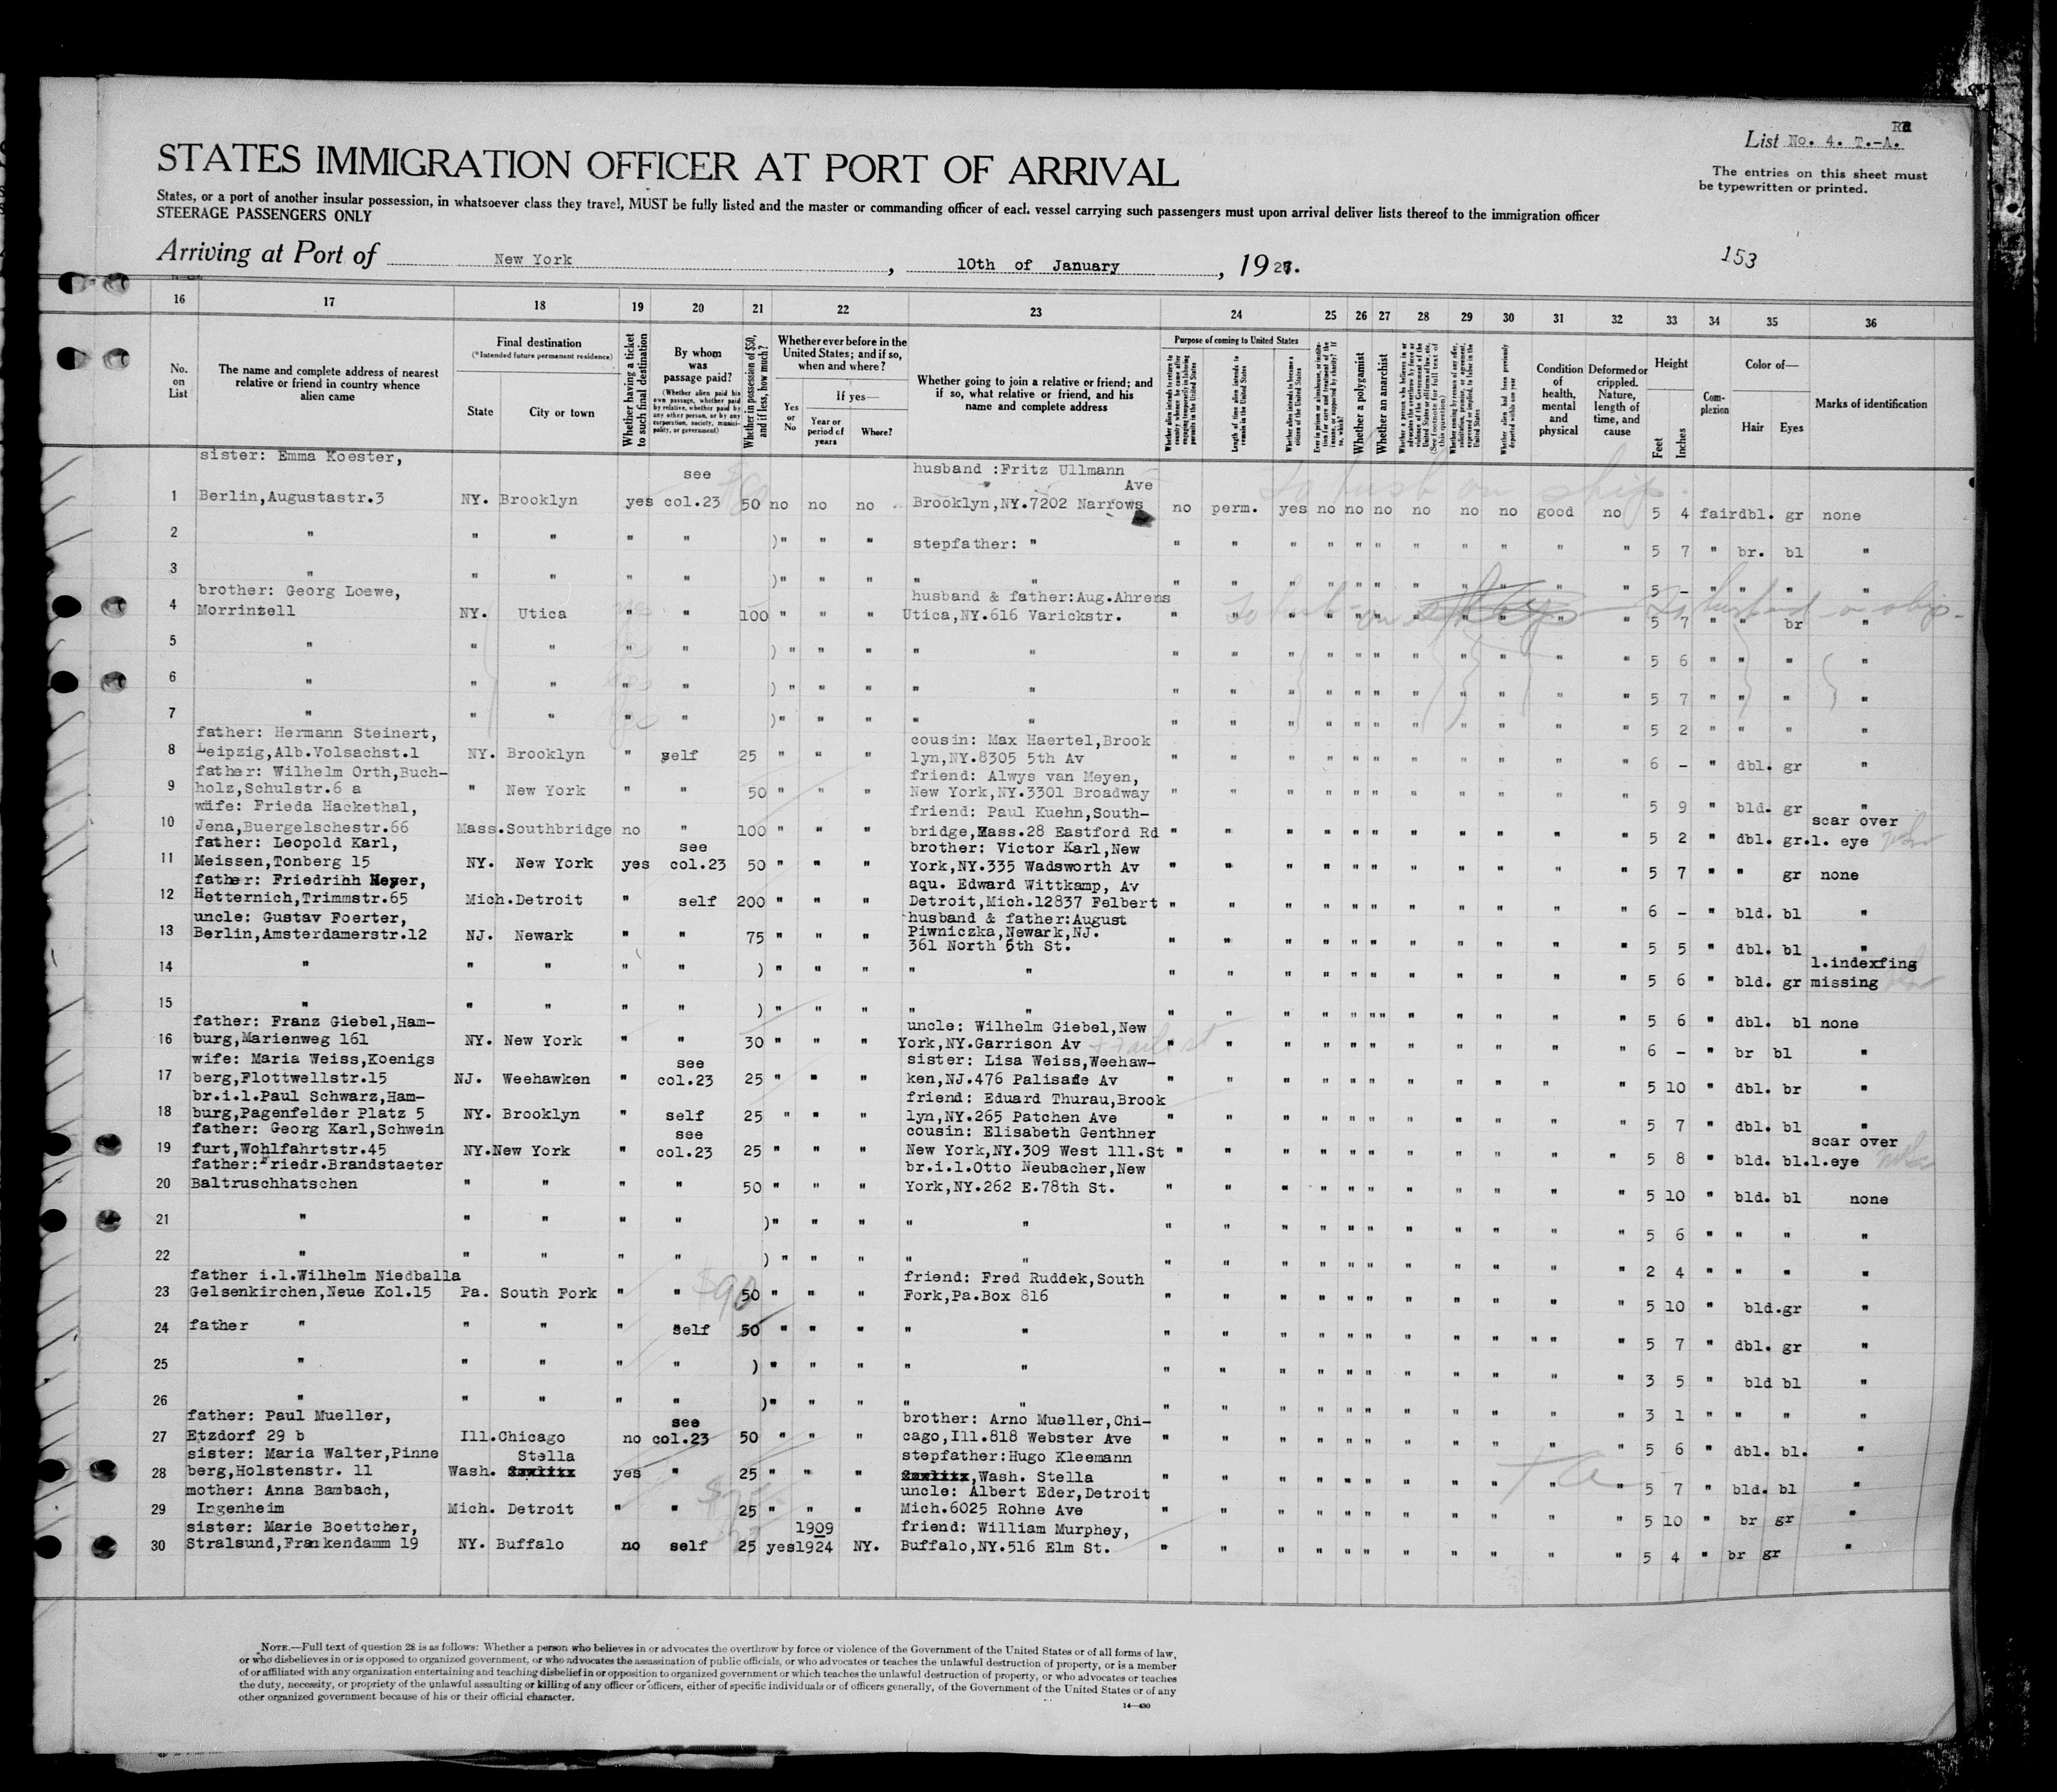 List No. 4. T.-A.
The entries on this sheet must
be typewritten or printed.
STATES IMMIGRATION OFFICER AT PORT OF ARRIVAL
States, or a port of another insular possession, in whatsoever class they travel, MUST be fully listed and the master or commanding officer of each vessel carrying such passengers must upon arrival deliver lists thereof to the immigration officer
STEERAGE PASSENGERS ONLY
Arriving at Port of New York, 10th of January, 192
153
16 17 18 19 20 21 22 23 24 25 26 27 28 29 30 31 32 33 34 35 36
No. on List
The name and complete address of nearest relative or friend in country whence alien came
Final destination
(*Intended future permanent residence)
State
City or town
Whether having a ticket to such final destination
By whom was passage paid?
(Whether alien paid his own passage, whether paid by relative, whether paid by any other person, or by any corporation, society, municipality, or government)
Whether in possession of $50, and if less, how much?
Whether ever before in the United States; and if so, when and where?
Yes or No
If yes—
Year or period of years
Where?
Whether going to join a relative or friend; and if so, what relative or friend, and his name and complete address
Purpose of coming to United States
Whether alien intends to return to country whence he came after engaging temporarily in laboring pursuits in the United States
Length of time alien intends to remain in the United States
Whether alien intends to become a citizen of the United States
Whether a polygamist
Whether an anarchist
Condition of health, mental and physical
Deformed or crippled. Nature, length of time, and cause
Height
Feet
Inches
Complexion
Color of—
Hair
Eyes
Marks of identification
sister: Emma Koester, see husband :Fritz Ullmann
Ave
1 Berlin,Augustastr.3 NY. Brooklyn yes col.23 50 no no no Brooklyn,NY.7202 Narrows no perm. yes no no no no no no good no 5 4 fair dbl. gr none
To husb on ship.
2 " " " " " )" " " stepfather: " " " " " " " " " " " " 5 7 " br. bl "
3 " " " " " )" " " " " " " " " " " " " " " " 5 - " " " "
brother: Georg Loewe, husband & father:Aug.Ahrens
4 Morrinzell NY. Utica " " 100 " " " Utica,NY.616 Varickstr. " " " " " " " " " " " 5 7 " " br "
To husb on To husband on ship.
5 " " " " " ) " " " " " " " " " " " " " " " " 5 6 " " " "
6 " " " " " ) " " " " " " " " " " " " " " " " 5 7 " " " "
7 " " " " " )" " " " " " " " " " " " " " " " 5 2 " " " "
father: Hermann Steinert, cousin: Max Haertel,Brook
8 Leipzig,Alb.Volsachst.1 NY. Brooklyn " self 25 " " " lyn,NY.8305 5th Av " " " " " " " " " " " 6 - " dbl. gr "
father: Wilhelm Orth,Buch- friend: Alwys van Meyen,
9 holz,Schulstr.6 a " New York " " 50 " " " New York,NY.3301 Broadway " " " " " " " " " " " 5 9 " bld. gr "
wife: Frieda Hackethal, friend: Paul Kuehn,South- scar over
10 Jena,Buergelschestr.66 Mass.Southbridge no " 100 " " " bridge,Mass.28 Eastford Rd " " " " " " " " " " " 5 2 " dbl. gr. l. eye
father: Leopold Karl, see brother: Victor Karl,New
11 Meissen,Tonberg 15 NY. New York yes col.23 50 " " " York,NY.335 Wadsworth Av " " " " " " " " " " " 5 7 " " gr none
father: Friedrihh Meyer, aqu. Edward Wittkamp, Av
12 Hetternich,Trimmstr.65 Mich.Detroit " self 200 " " " Detroit,Mich.12837 Felbert " " " " " " " " " " " 6 - " bld. bl "
uncle: Gustav Foerter, husband & father:August
13 Berlin,Amsterdamerstr.12 NJ. Newark " " 75 " " " Piwniczka,Newark,NJ.
361 North 6th St. " " " " " " " " " " " 5 5 " dbl. bl "
l.indexfing
14 " " " " " ) " " " " " " " " " " " " " " " " 5 6 " bld. gr missing
15 " " " " " ) " " " " " " " " " " " " " " " " 5 6 " dbl. bl none
father: Franz Giebel,Ham- uncle: Wilhelm Giebel,New
16 burg,Marienweg 161 NY. New York " " 30 " " " York,NY.Garrison Av " " " " " " " " " " " 6 - " br bl "
wife: Maria Weiss,Koenigs see sister: Lisa Weiss,Weehaw-
17 berg,Flottwellstr.15 NJ. Weehawken " col.23 25 " " " ken,NJ.476 Palisade Av " " " " " " " " " " " 5 10 " dbl. br "
br.i.l.Paul Schwarz,Ham- friend: Eduard Thurau,Brook
18 burg,Pagenfelder Platz 5 NY. Brooklyn " self 25 " " " lyn,NY.265 Patchen Ave " " " " " " " " " " " 5 7 " dbl. bl "
father: Georg Karl,Schwein see cousin: Elisabeth Genthner scar over
19 furt,Wohlfahrtstr.45 NY.New York " col.23 25 " " " New York,NY.309 West 111.St " " " " " " " " " " " 5 8 " bld. bl. l.eye
father:Friedr.Brandstaeter br.i.l.Otto Neubacher,New
20 Baltruschhatschen " " " " 50 " " " York,NY.262 E.78th St. " " " " " " " " " " " 5 10 " bld. bl none
21 " " " " " )" " " " " " " " " " " " " " " " 5 6 " " " "
22 " " " " " ) " " " " " " " " " " " " " " " " 2 4 " " " "
father i.l.Wilhelm Niedballa friend: Fred Ruddek,South
23 Gelsenkirchen,Neue Kol.15 Pa. South Fork " " $90 50 " " " Fork,Pa.Box 816 " " " " " " " " " " " 5 10 " bld.gr "
24 father " " " " self 50 " " " " " " " " " " " " " " " " " 5 7 " dbl. gr "
25 " " " " " ) " " " " " " " " " " " " " " " " 3 5 " bld bl "
26 " " " " " )" " " " " " " " " " " " " " " " 3 1 " " " "
father: Paul Mueller, see brother: Arno Mueller,Chi-
27 Etzdorf 29 b Ill.Chicago no col.23 50 " " " cago,Ill.818 Webster Ave " " " " " " " " " " " 5 6 " dbl. bl. "
sister: Maria Walter,Pinne Stella stepfather:Hugo Kleemann
28 berg,Holstenstr. 11 Wash. yes " 25 " " " ,Wash. Stella " " " " " " " " " " " 5 7 " bld. bl "
mother: Anna Bambach, uncle: Albert Eder,Detroit
29 Ingenheim Mich. Detroit " " 25 " " " Mich.6025 Rohne Ave " " " " " " " " " " " 5 10 " br gr "
sister: Marie Boettcher, 1909 friend: William Murphey,
30 Stralsund,Frankendamm 19 NY. Buffalo no self 25 yes 1924 NY. Buffalo,NY.516 Elm St. " " " " " " " " " " " 5 4 " br gr "
NOTE.—Full text of question 28 is as follows: Whether a person who believes in or advocates the overthrow by force or violence of the Government of the United States or of all forms of law,
or who disbelieves in or is opposed to organized government, or who advocates the assassination of public officials, or who advocates or teaches the unlawful destruction of property, or is a member
of or affiliated with any organization entertaining and teaching disbelief in or opposition to organized government or which teaches the unlawful destruction of property, or who advocates or teaches
the duty, necessity, or propriety of the unlawful assaulting or killing of any officer or officers, either of specific individuals or of officers generally, of the Government of the United States or of any
other organized government because of his or their official character.
14—430